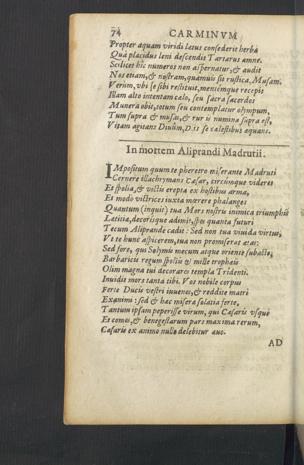 74 CARMINVM
Propter aquam viridi latus consederit herba
Quà placidus leni descendit Tartarus amne.
Scilicet hic numeros non aspernatur, & audit
Nos etiam, & nostram, quamuis sit rustica, Musam.
Verùm, vbi se sibi restituit, mensémque recepto
Illam alto intentam cælo, seu sacra sacerdos
Munera obit, totum seu contemplatur olympum,
Tum supra & musas, & rur is numina supra est,
Vitam agitans Diuûm, Dis se cælestibus æquans.
In mortem Aliprandi Madrutii.
IMpositum quum te pheretro miserante Madruti
Cernere illachrymans Cæsar, circúmque videret
Et spolia, & vexillis erepta ex hostibus arma,
Et modo victrices iuxta mærere phalanges:
Quantum (inquit) tua Mors nostris inimica triumphis
Lætitiæ, decorísque adimit, spes quanta futuri
Tecum Aliprande cadit: Sed non tua viuida virtus,
Vt te hunc aspicerem, tua non promiserat ætas:
Sed fore, qui Solymis mecum atque oriente subacto,
Barbaricis regum spoliis & mille trophæis
Olim magna tui decorares templa Tridenti.
Inuidit mors tanta tibi. Vos nobile corpus
Ferte Ducis vestri iuuenes, & reddite matri
Exanimi: sed & hæc misera solatia ferte,
Tantum ipsam peperisse virum, qui Cæsaris vsque
Et comes, & benegestarum pars maxima rerum,
Cæsaris ex animo nullo delebitur æuo.
AD